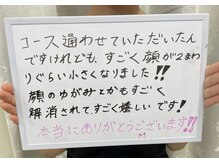 コース通わせていただいたん
ですけれども、すごく顔が2まわ
りぐらい小さくなりました!!
顔のゆがみとかもすごく
解消されて、すごく嬉しいです!
本当にありがとうございます!!
M